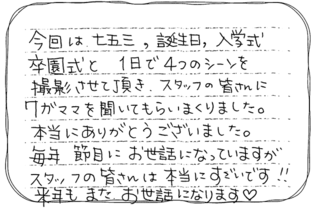 今回は、七五三,誕生日,入学式
卒園式と 1日で4つのシーンを
撮影させて頂き、スタッフの皆さんに
ワガママを聞いてもらいまくりました。
本当にありがとうございました。
毎年 節目に お世話になっていますが
スタッフの皆さんは本当にすごいです!!
来年も また お世話になります♡